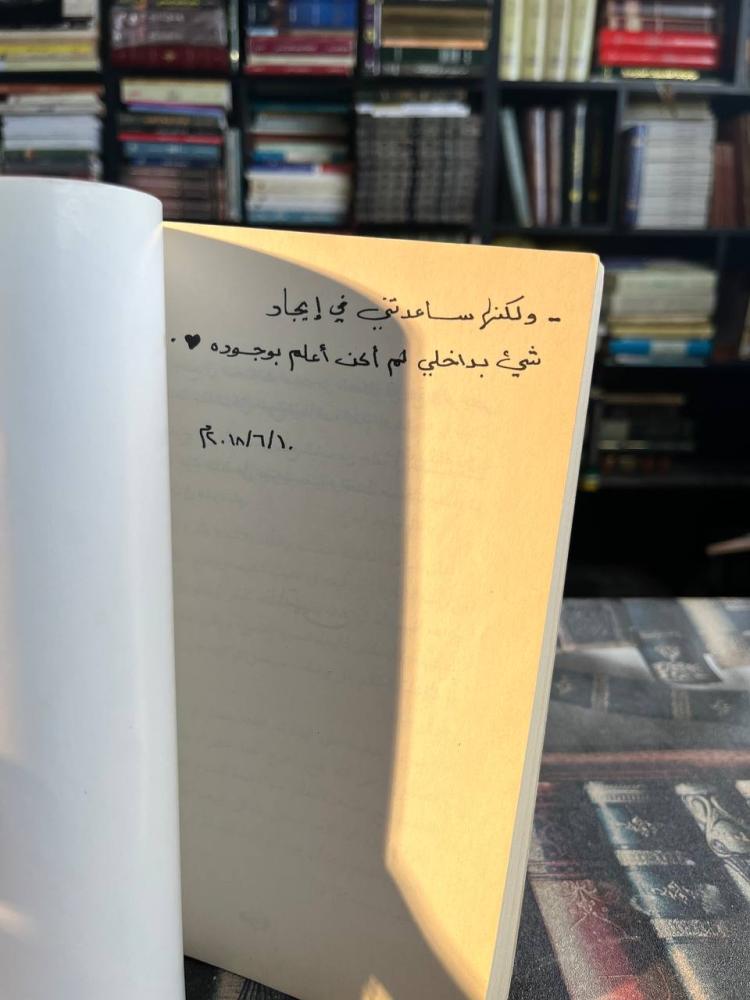 - ولكنها ساعدتني في إيجاد
شيء بداخلي لم أكن أعلم بوجوده ♥.
٢٠١٨/٦/١٠م